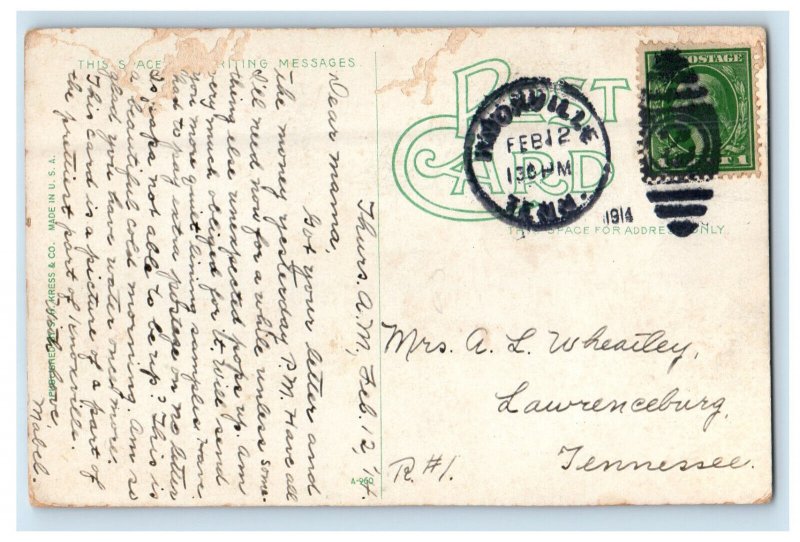 THIS SPACE WRITING MESSAGES.
POST CARD
THIS SPACE FOR ADDRESS ONLY.
POSTAGE
1
KNOXVILLE
FEB 12
130 PM
TENN.
1914
Thurs. A.M., Feb. 12 '14.
Dear mama,
Got your letter and
the money yesterday P.M. Have all
I'll need now for a while unless some-
thing else unexpected pops up. Am
very much obliged for it. Will send
you more quilt lining samples. Have
had to pay extra postage on no letter
Is papa not able to be up? This is
a beautiful cold morning. Am so
glad you have water once more.
This card is a picture of a part of
the prettiest part of Knoxville.
With love,
Mabel.
Mrs. A. L. Wheatley,
Lawrenceburg,
Tennessee.
R #1.
A-960
PUBLISHED BY S. H. KRESS & CO. MADE IN U. S. A.